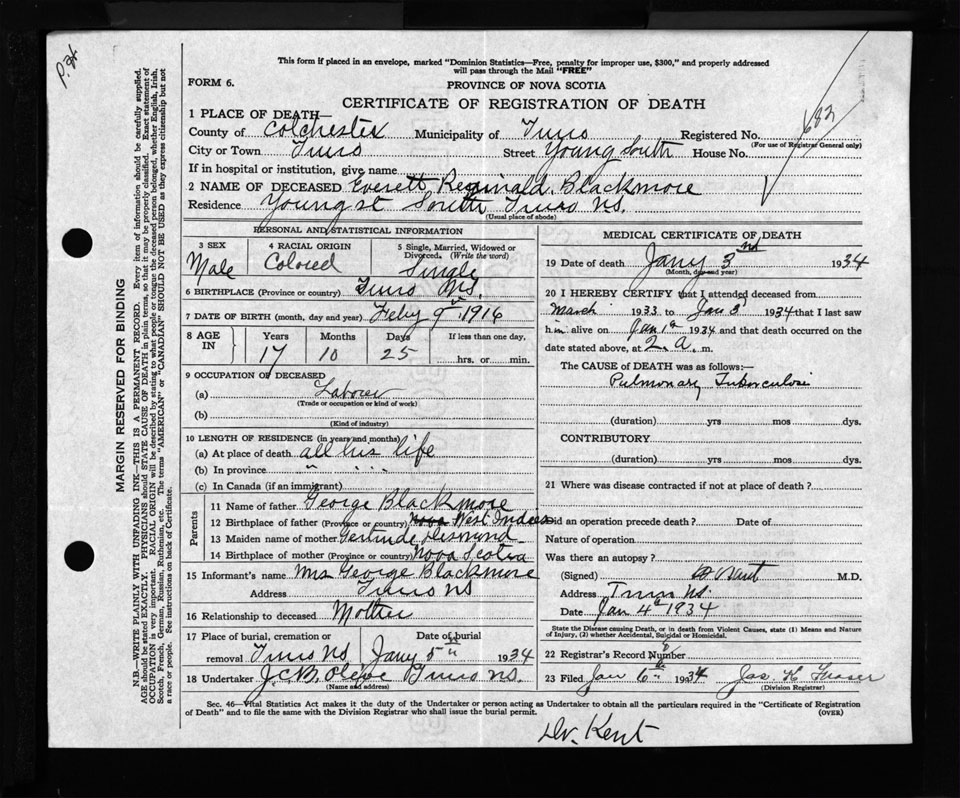 P.24
This form if placed in an envelope, marked "Dominion Statistics—Free, penalty for improper use, $300," and properly addressed
will pass through the Mail "FREE"
FORM 6.
PROVINCE OF NOVA SCOTIA
CERTIFICATE OF REGISTRATION OF DEATH
683
1 PLACE OF DEATH—
County of Colchester Municipality of Truro Registered No.
(For use of Registrar General only)
City or Town Truro Street Young South House No.
If in hospital or institution, give name
2 NAME OF DECEASED Everett Reginald Blackmore
Residence Young St South Truro N.S.
(Usual place of abode)
PERSONAL AND STATISTICAL INFORMATION
3 SEX Male
4 RACIAL ORIGIN Colored
5 Single, Married, Widowed or Divorced. (Write the word) Single
6 BIRTHPLACE (Province or country) Truro N.S.
7 DATE OF BIRTH (month, day and year) Feby 9th, 1916
8 AGE IN Years Months Days If less than one day,
17 10 25 hrs. or min.
9 OCCUPATION OF DECEASED
(a) Laborer
(Trade or occupation or kind of work)
(b)
(Kind of industry)
10 LENGTH OF RESIDENCE (in years and months)
(a) At place of death all his life
(b) In province " " "
(c) In Canada (if an immigrant)
Parents
11 Name of father George Blackmore
12 Birthplace of father (Province or country) Nova West Indies
13 Maiden name of mother Gertrude Desmond
14 Birthplace of mother (Province or country) Nova Scotia
15 Informant's name Mrs George Blackmore
Address Truro N.S.
16 Relationship to deceased Mother
17 Place of burial, cremation or removal Truro N.S. Date of burial Jany 5th 1934
18 Undertaker J.C.B. Olive Truro N.S.
(Name and address)
MEDICAL CERTIFICATE OF DEATH
19 Date of death Jany 3nd 1934
(Month, day and year)
20 I HEREBY CERTIFY that I attended deceased from
March 1933 to Jan 3 1934 that I last saw
him alive on Jan 1st 1934 and that death occurred on the
date stated above, at 2 a. m.
The CAUSE OF DEATH was as follows:—
Pulmonary Tuberculosis
(duration) yrs mos dys.
CONTRIBUTORY
(duration) yrs mos dys.
21 Where was disease contracted if not at place of death?
Did an operation precede death? Date of
Nature of operation
Was there an autopsy?
(Signed) Kent M.D.
Address Truro N.S.
Date Jan 4th 1934
State the Disease causing Death, or in death from Violent Causes, state (1) Means and Nature of Injury, (2) whether Accidental, Suicidal or Homicidal.
22 Registrar's Record Number 6
23 Filed Jan 6th 1934 Jas. H. Fraser
(Division Registrar)
Sec. 46—Vital Statistics Act makes it the duty of the Undertaker or person acting as Undertaker to obtain all the particulars required in the "Certificate of Registration
of Death" and to file the same with the Division Registrar who shall issue the burial permit.
(OVER)
Dr. Kent
MARGIN RESERVED FOR BINDING
N.B.—WRITE PLAINLY WITH UNFADING INK—THIS IS A PERMANENT RECORD. Every item of information should be carefully supplied.
AGE should be stated EXACTLY. PHYSICIANS should STATE CAUSE OF DEATH in plain terms, so that it may be properly classified. Exact statement of
OCCUPATION is very important. RACIAL ORIGIN will be described by stating to what people or tongue the deceased person belonged, whether English, Irish,
Scotch, French, German, Russian, Ruthenian, etc. The terms "AMERICAN" or "CANADIAN" SHOULD NOT BE USED as they express citizenship but not
a race or people. See instructions on back of Certificate.